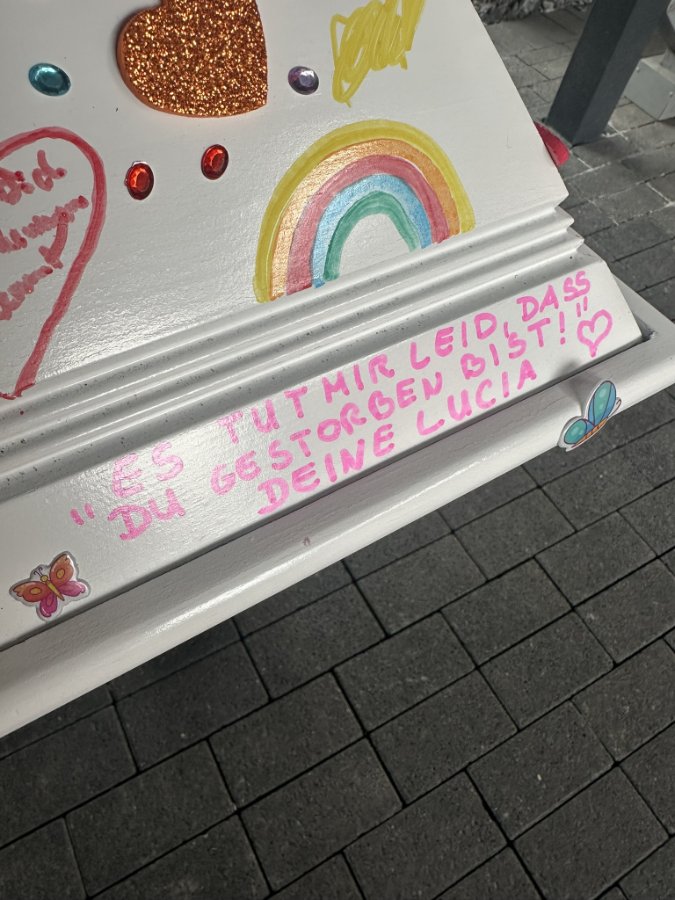 Dich
"ES TUT MIR LEID, DASS
DU GESTORBEN BIST!"
DEINE LUCIA